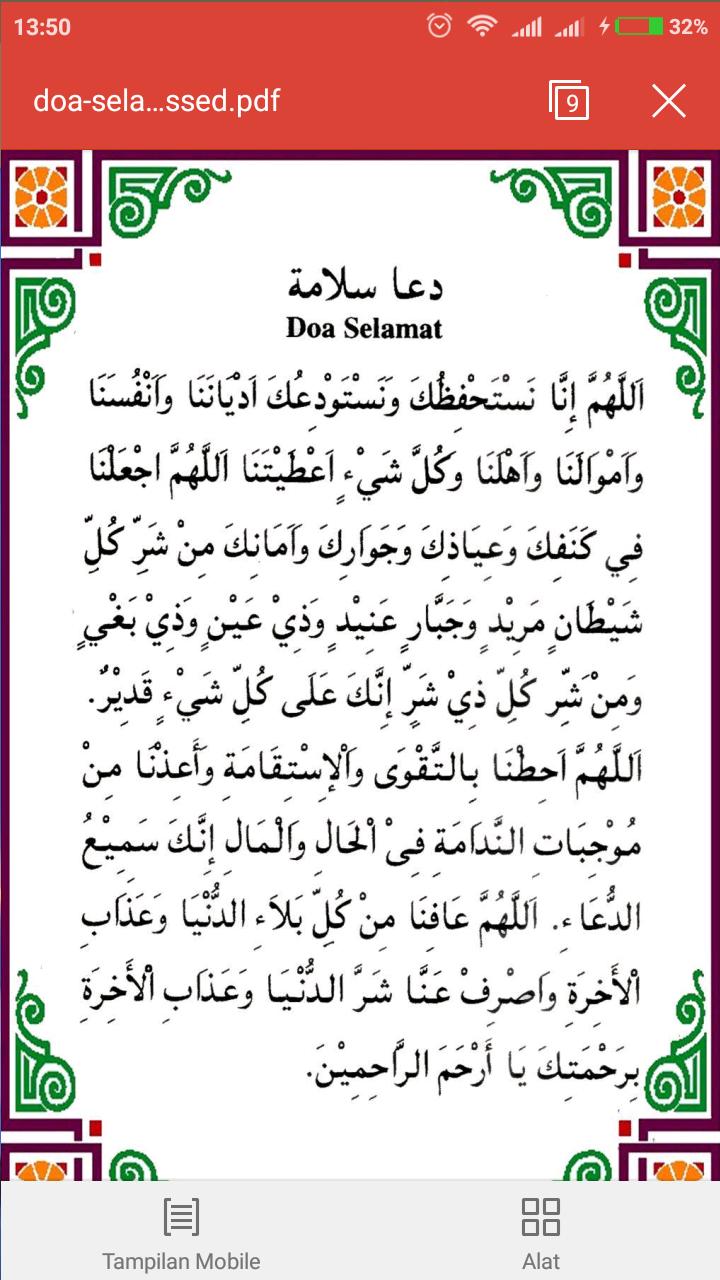 13:50
32%
doa-sela...ssed.pdf
9
دعا سلامة
Doa Selamat
اَللَّهُمَّ إِنَّا نَسْتَحْفِظُكَ وَنَسْتَوْدِعُكَ اَدْيَانَنَا وَاَنْفُسَنَا
وَاَمْوَالَنَا وَاَهْلَنَا وَكُلَّ شَيْءٍ اَعْطَيْتَنَا اَللَّهُمَّ اجْعَلْنَا
فِي كَنَفِكَ وَعِيَاذِكَ وَجَوَارِكَ وَاَمَانِكَ مِنْ شَرِّ كُلِّ
شَيْطَانٍ مَرِيْدٍ وَجَبَّارٍ عَنِيْدٍ وَذِيْ عَيْنٍ وَذِيْ بَغْيٍ
وَمِنْ شَرِّ كُلِّ ذِيْ شَرٍّ إِنَّكَ عَلَى كُلِّ شَيْءٍ قَدِيْرٌ.
اَللَّهُمَّ اَحِطْنَا بِالتَّقْوَى وَاْلإِسْتِقَامَةِ وَأَعِذْنَا مِنْ
مُوْجِبَاتِ النَّدَامَةِ فِىْ اْلحَالِ وَاْلمَالِ إِنَّكَ سَمِيْعُ
الدُّعَاءِ. اَللَّهُمَّ عَافِنَا مِنْ كُلِّ بَلاَءِ الدُّنْيَا وَعَذَابِ
اْلأَخِرَةِ وَاصْرِفْ عَنَّا شَرَّ الدُّنْيَا وَعَذَابِ اْلأَخِرَةِ
بِرَحْمَتِكَ يَا أَرْحَمَ الرَّاحِمِيْنَ.
Tampilan Mobile
Alat